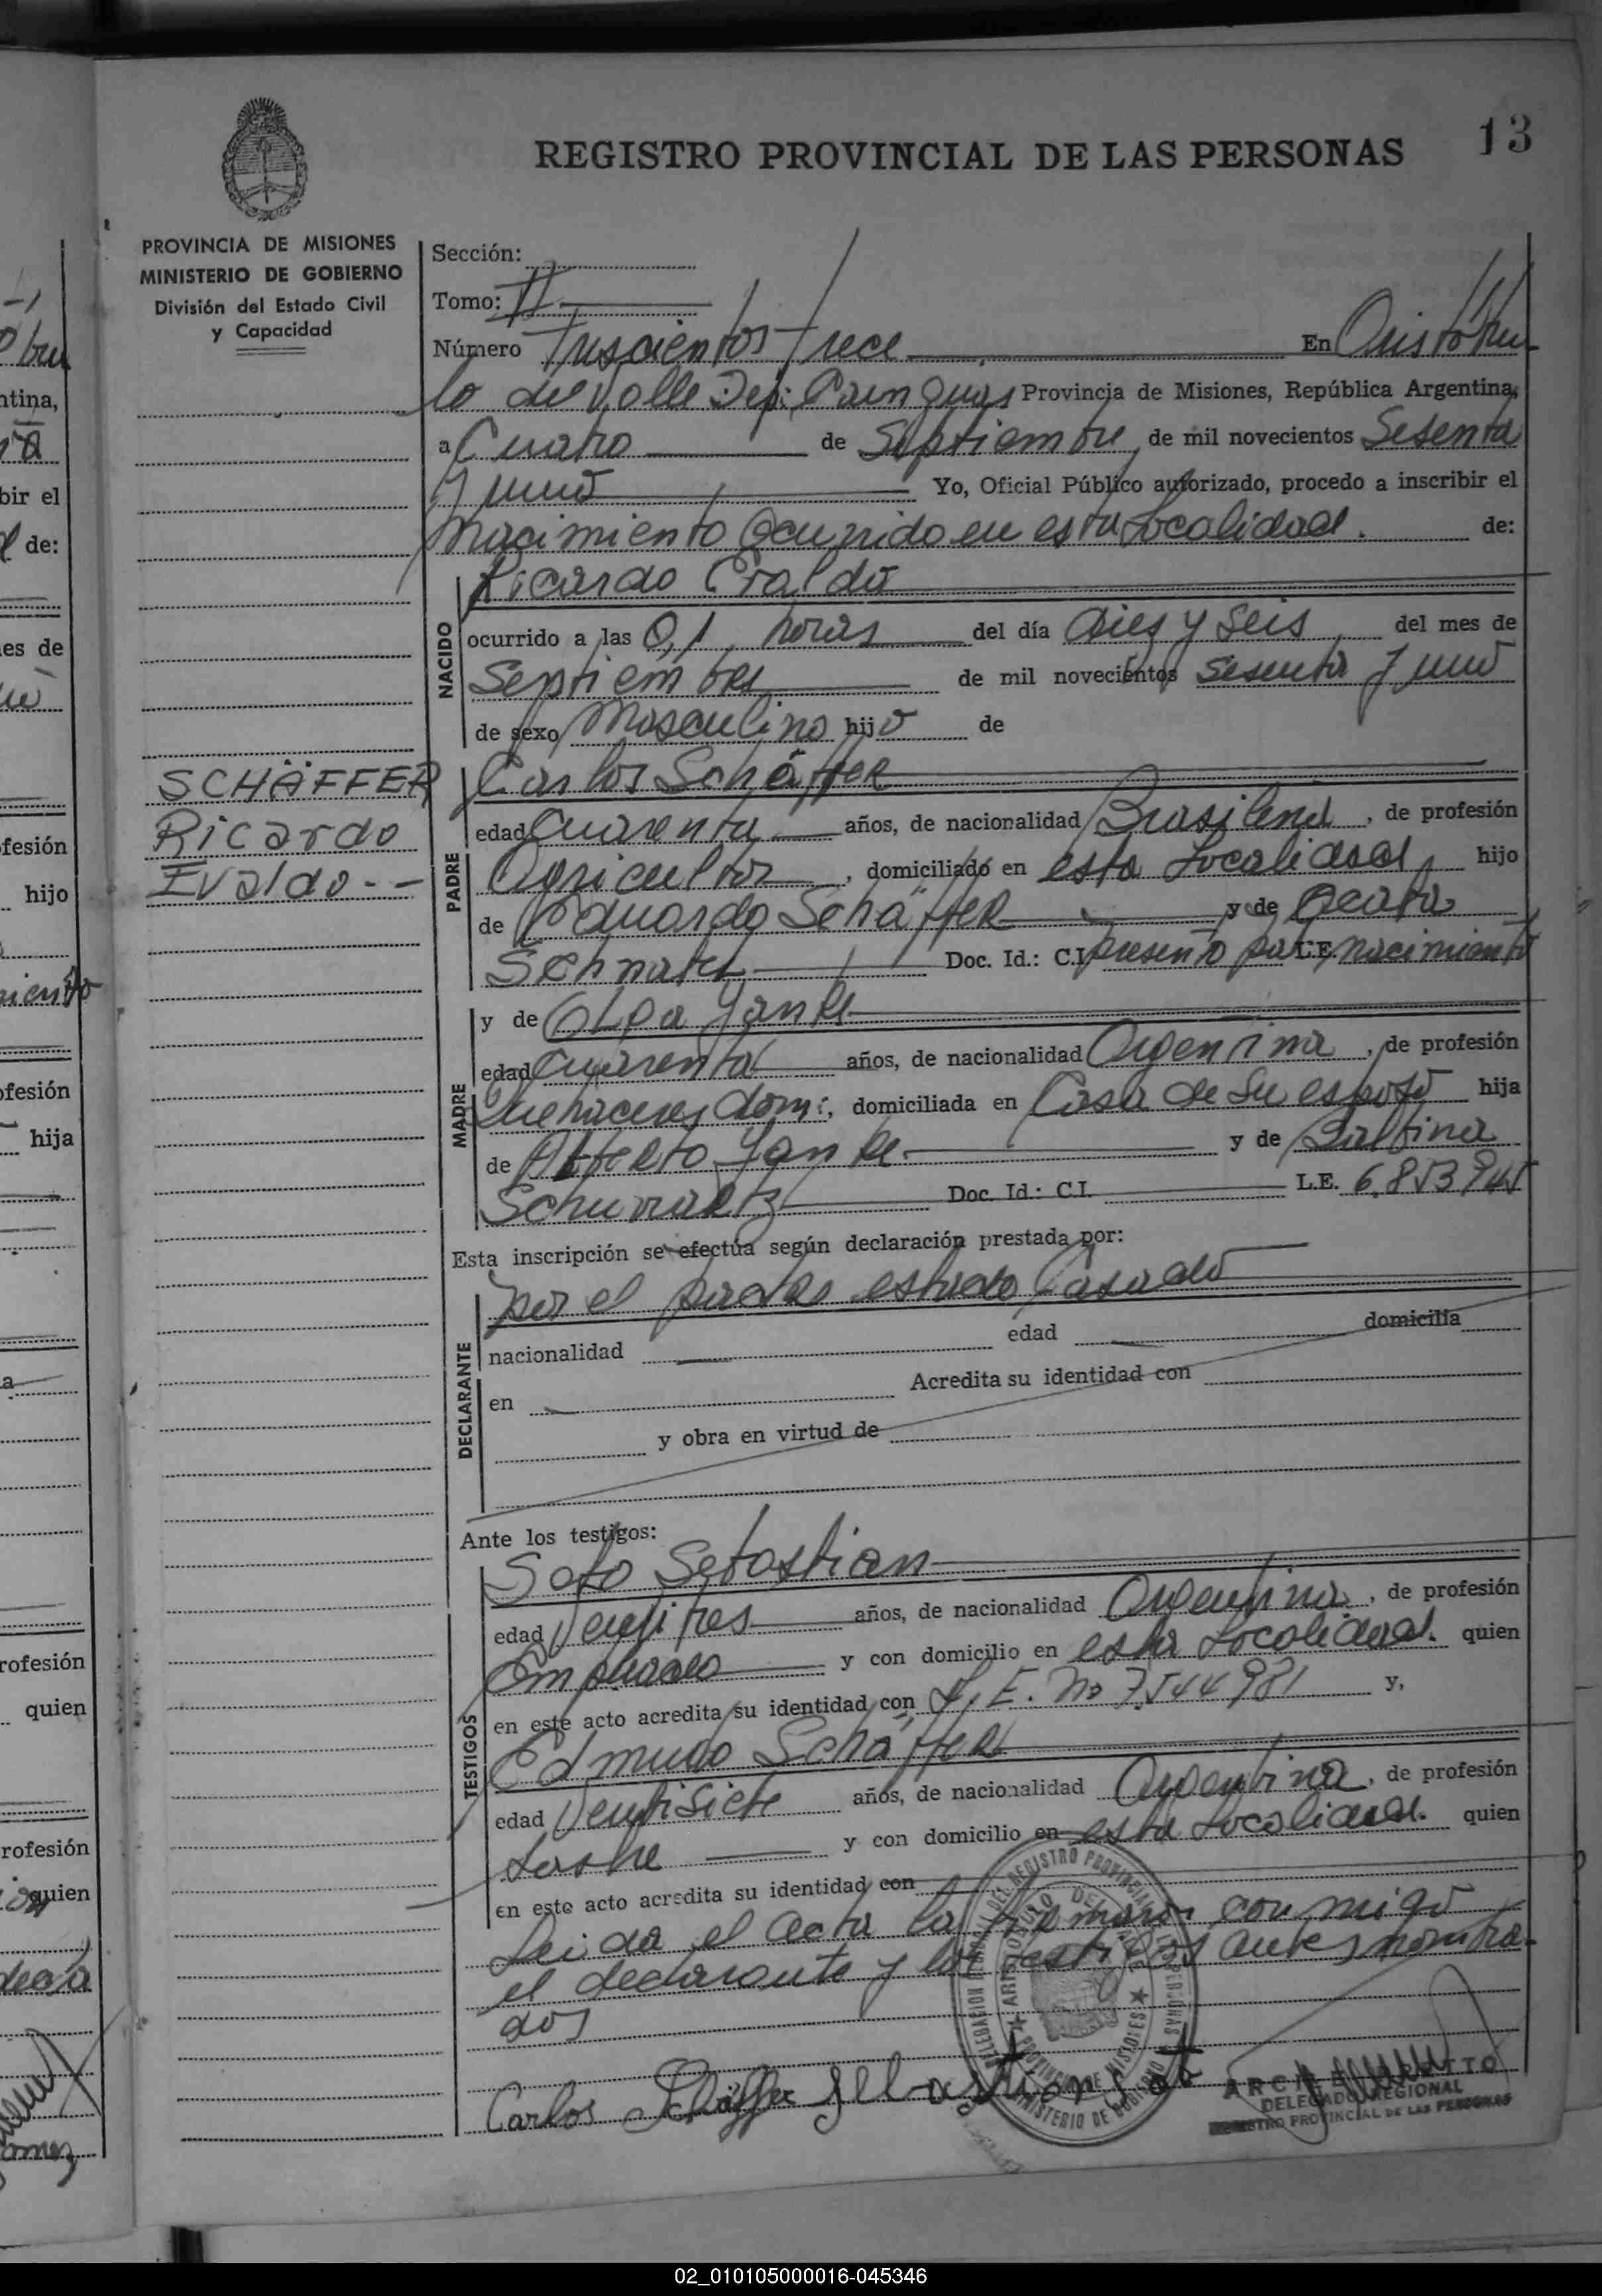 13
REGISTRO PROVINCIAL DE LAS PERSONAS
PROVINCIA DE MISIONES
MINISTERIO DE GOBIERNO
División del Estado Civil
y Capacidad
SCHÄFFER
Ricardo
Evaldo.--
Sección:
Tomo: II
Número Trescientos trece En Aristóbu
lo del Valle Dep: Cainguas Provincia de Misiones, República Argentina,
a Cuatro de Septiembre, de mil novecientos Sesenta
y uno Yo, Oficial Público autorizado, procedo a inscribir el
nacimiento Ocurrido en esta Localidad. de:
NACIDO
Ricardo Evaldo
ocurrido a las 0,1 horas del día diez y seis del mes de
Septiembre de mil novecientos sesenta y uno
de sexo Masculino hijo de
PADRE
Carlos Schäffer
edad Cuarenta años, de nacionalidad Brasilena, de profesión
Agricultor, domiciliado en esta Localidad, hijo
de Eduardo Schäffer y de
Doc. Id.: C.I. presento par L.E. nacimiento
MADRE
y de Olga Yanke
edad Cuarenta años, de nacionalidad Argentina, de profesión
Quehaceres dom:, domiciliada en Casa de su esposo hija
de Alberto Yanke y de Balbina
Doc. Id.: C.I. L.E. 6.853945
Esta inscripción se efectúa según declaración prestada por:
DECLARANTE
por el padre estado Casado
nacionalidad edad domicilia
en Acredita su identidad con
y obra en virtud de
Ante los testigos:
TESTIGOS
Soto Sebastian
edad Ventitres años, de nacionalidad Argentina, de profesión
Empleado y con domicilio en esta Localidad. quien
en este acto acredita su identidad con L.E. No 7544981 y,
Edmundo Schäffer
edad Ventisiete años, de nacionalidad Argentina, de profesión
y con domicilio en esta Localidad. quien
en este acto acredita su identidad con
Leida el acta la firmaron con migo
el declarante y los testigos antes nombra-
dos
Carlos Schäffer Sebastian Soto
DELEGADO REGIONAL
REGISTRO PROVINCIAL DE LAS PERSONAS
02_010105000016-045346